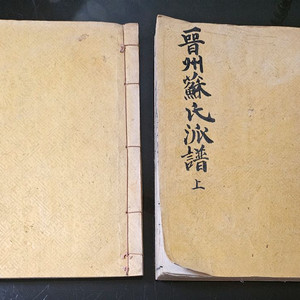 晋州蘇氏派譜上